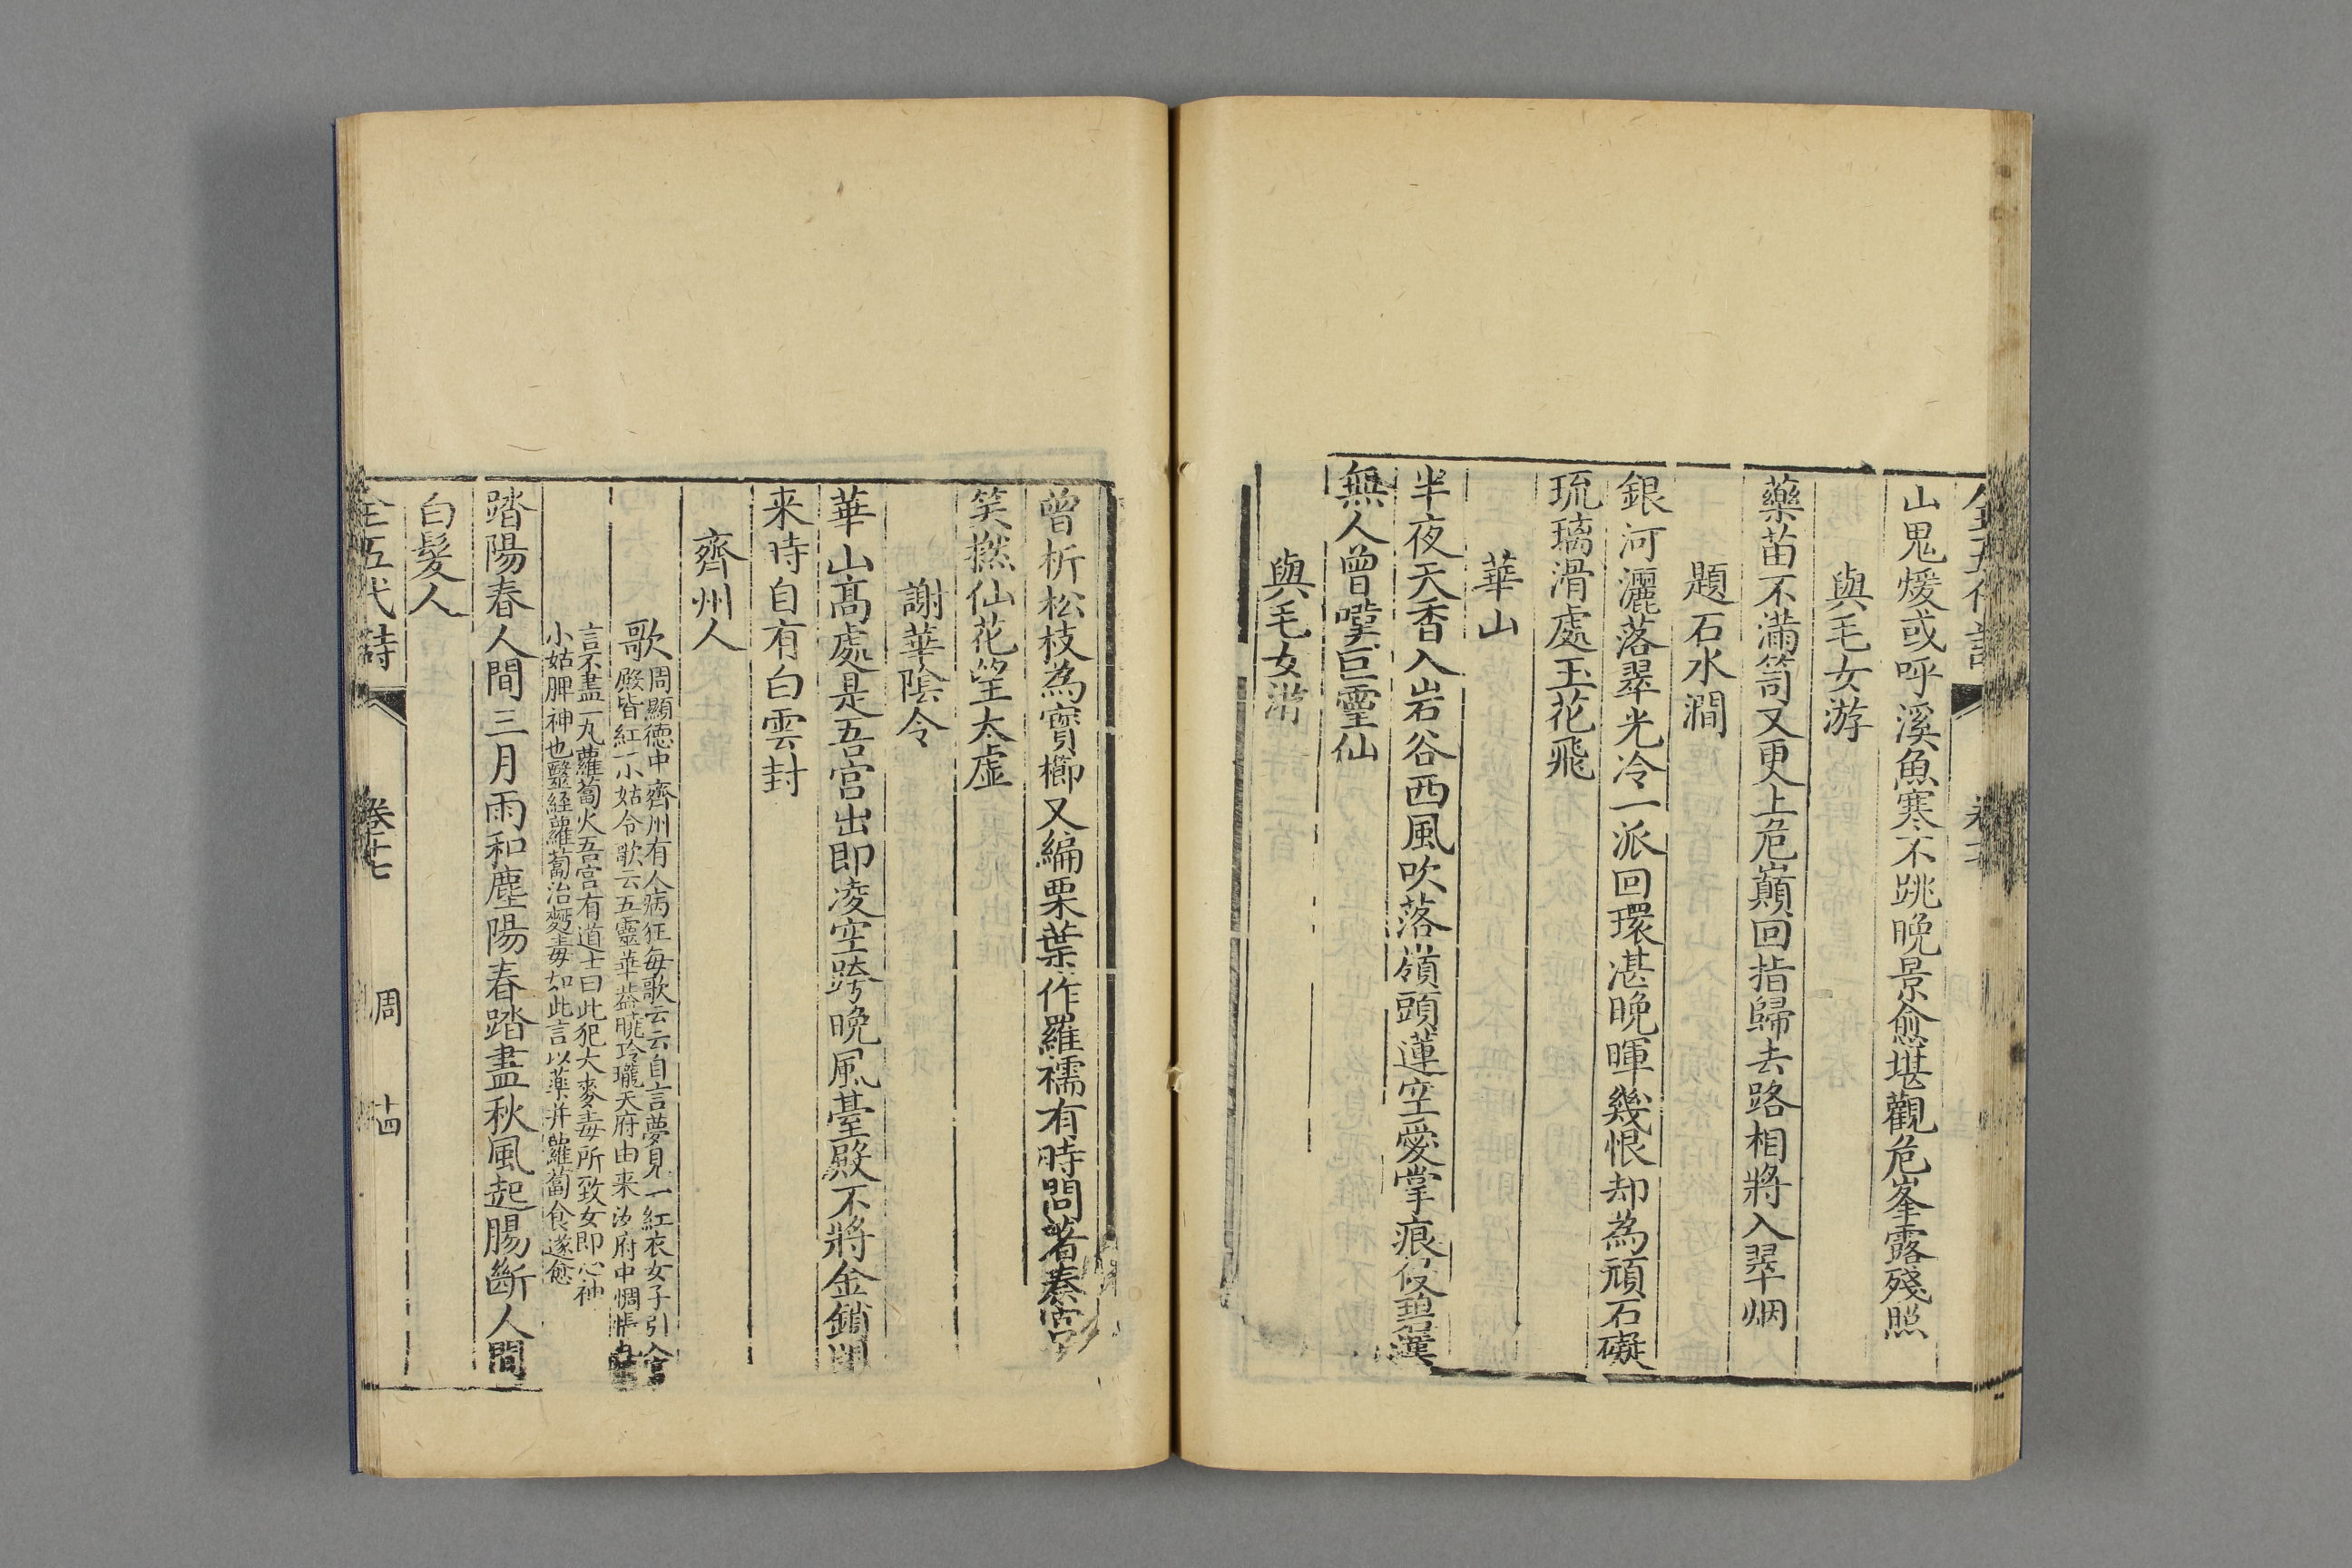 山鬼煖或呼溪魚寒不跳晚景愈堪觀危峯露殘照
與毛女游
藥苗不滿笥又更上危巔回指歸去路相將入翠烟
題石水澗
銀河灑落翠光冷一派回環湛晚暉幾恨却為頑石礙
琉璃滑處玉花飛
華山
半夜天香入岩谷西風吹落嶺頭蓮空愛掌痕侵碧漢
無人曾嘆巨靈仙
與毛女游
曾析松枝為寳櫛又編栗葉作羅襦有時問著秦宫
笑撚仙花望太虛
謝華隂令
華山髙處是吾宫出即凌空跨晚風臺殿不將金鎖閉
来時自有白雲封
齊州人
歌周顯德中齊州有人病狂每歌云云自言夢見一紅衣女子引入宫
殿皆紅一小姑令歌云五靈華葢曉玲瓏天府由来汝府中惆悵
言不盡一丸蘿蔔火吾宫有道士曰此犯大麥毒所致女即心神
小姑脾神也醫経蘿蔔治麪毒如此言以藥并蘿蔔食遂愈
踏陽春人間三月雨和塵陽春踏盡秋風起腸斷人間
白髪人
全五代詩 卷十七 周 十四